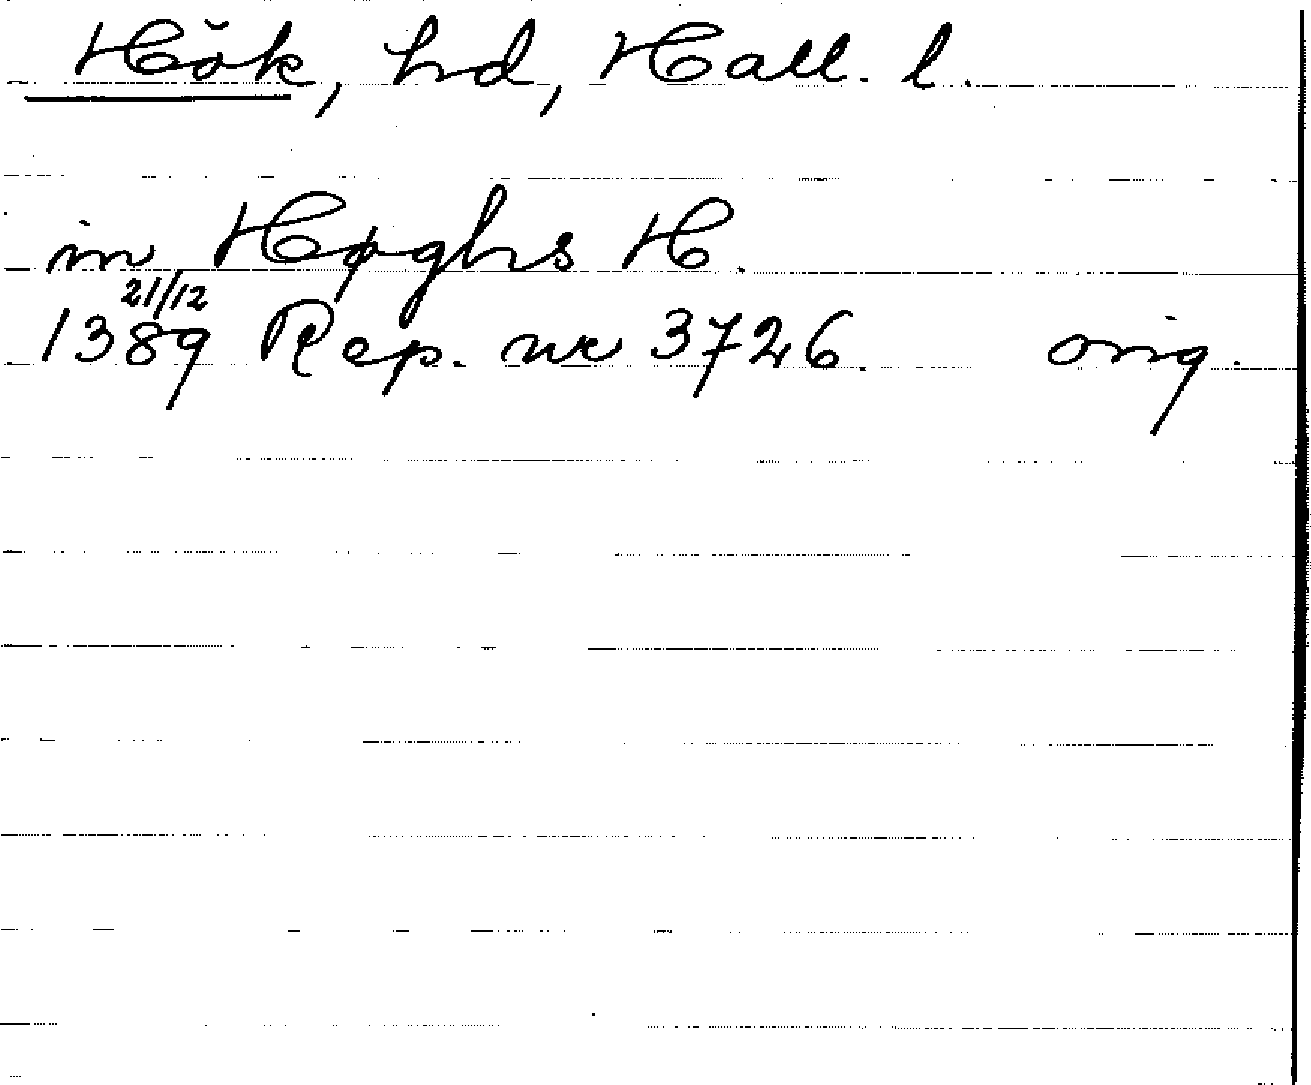 Hök, hd, Hall. l.
in Høghs H.
21/12
1389 Rep. nr 3726. orig.